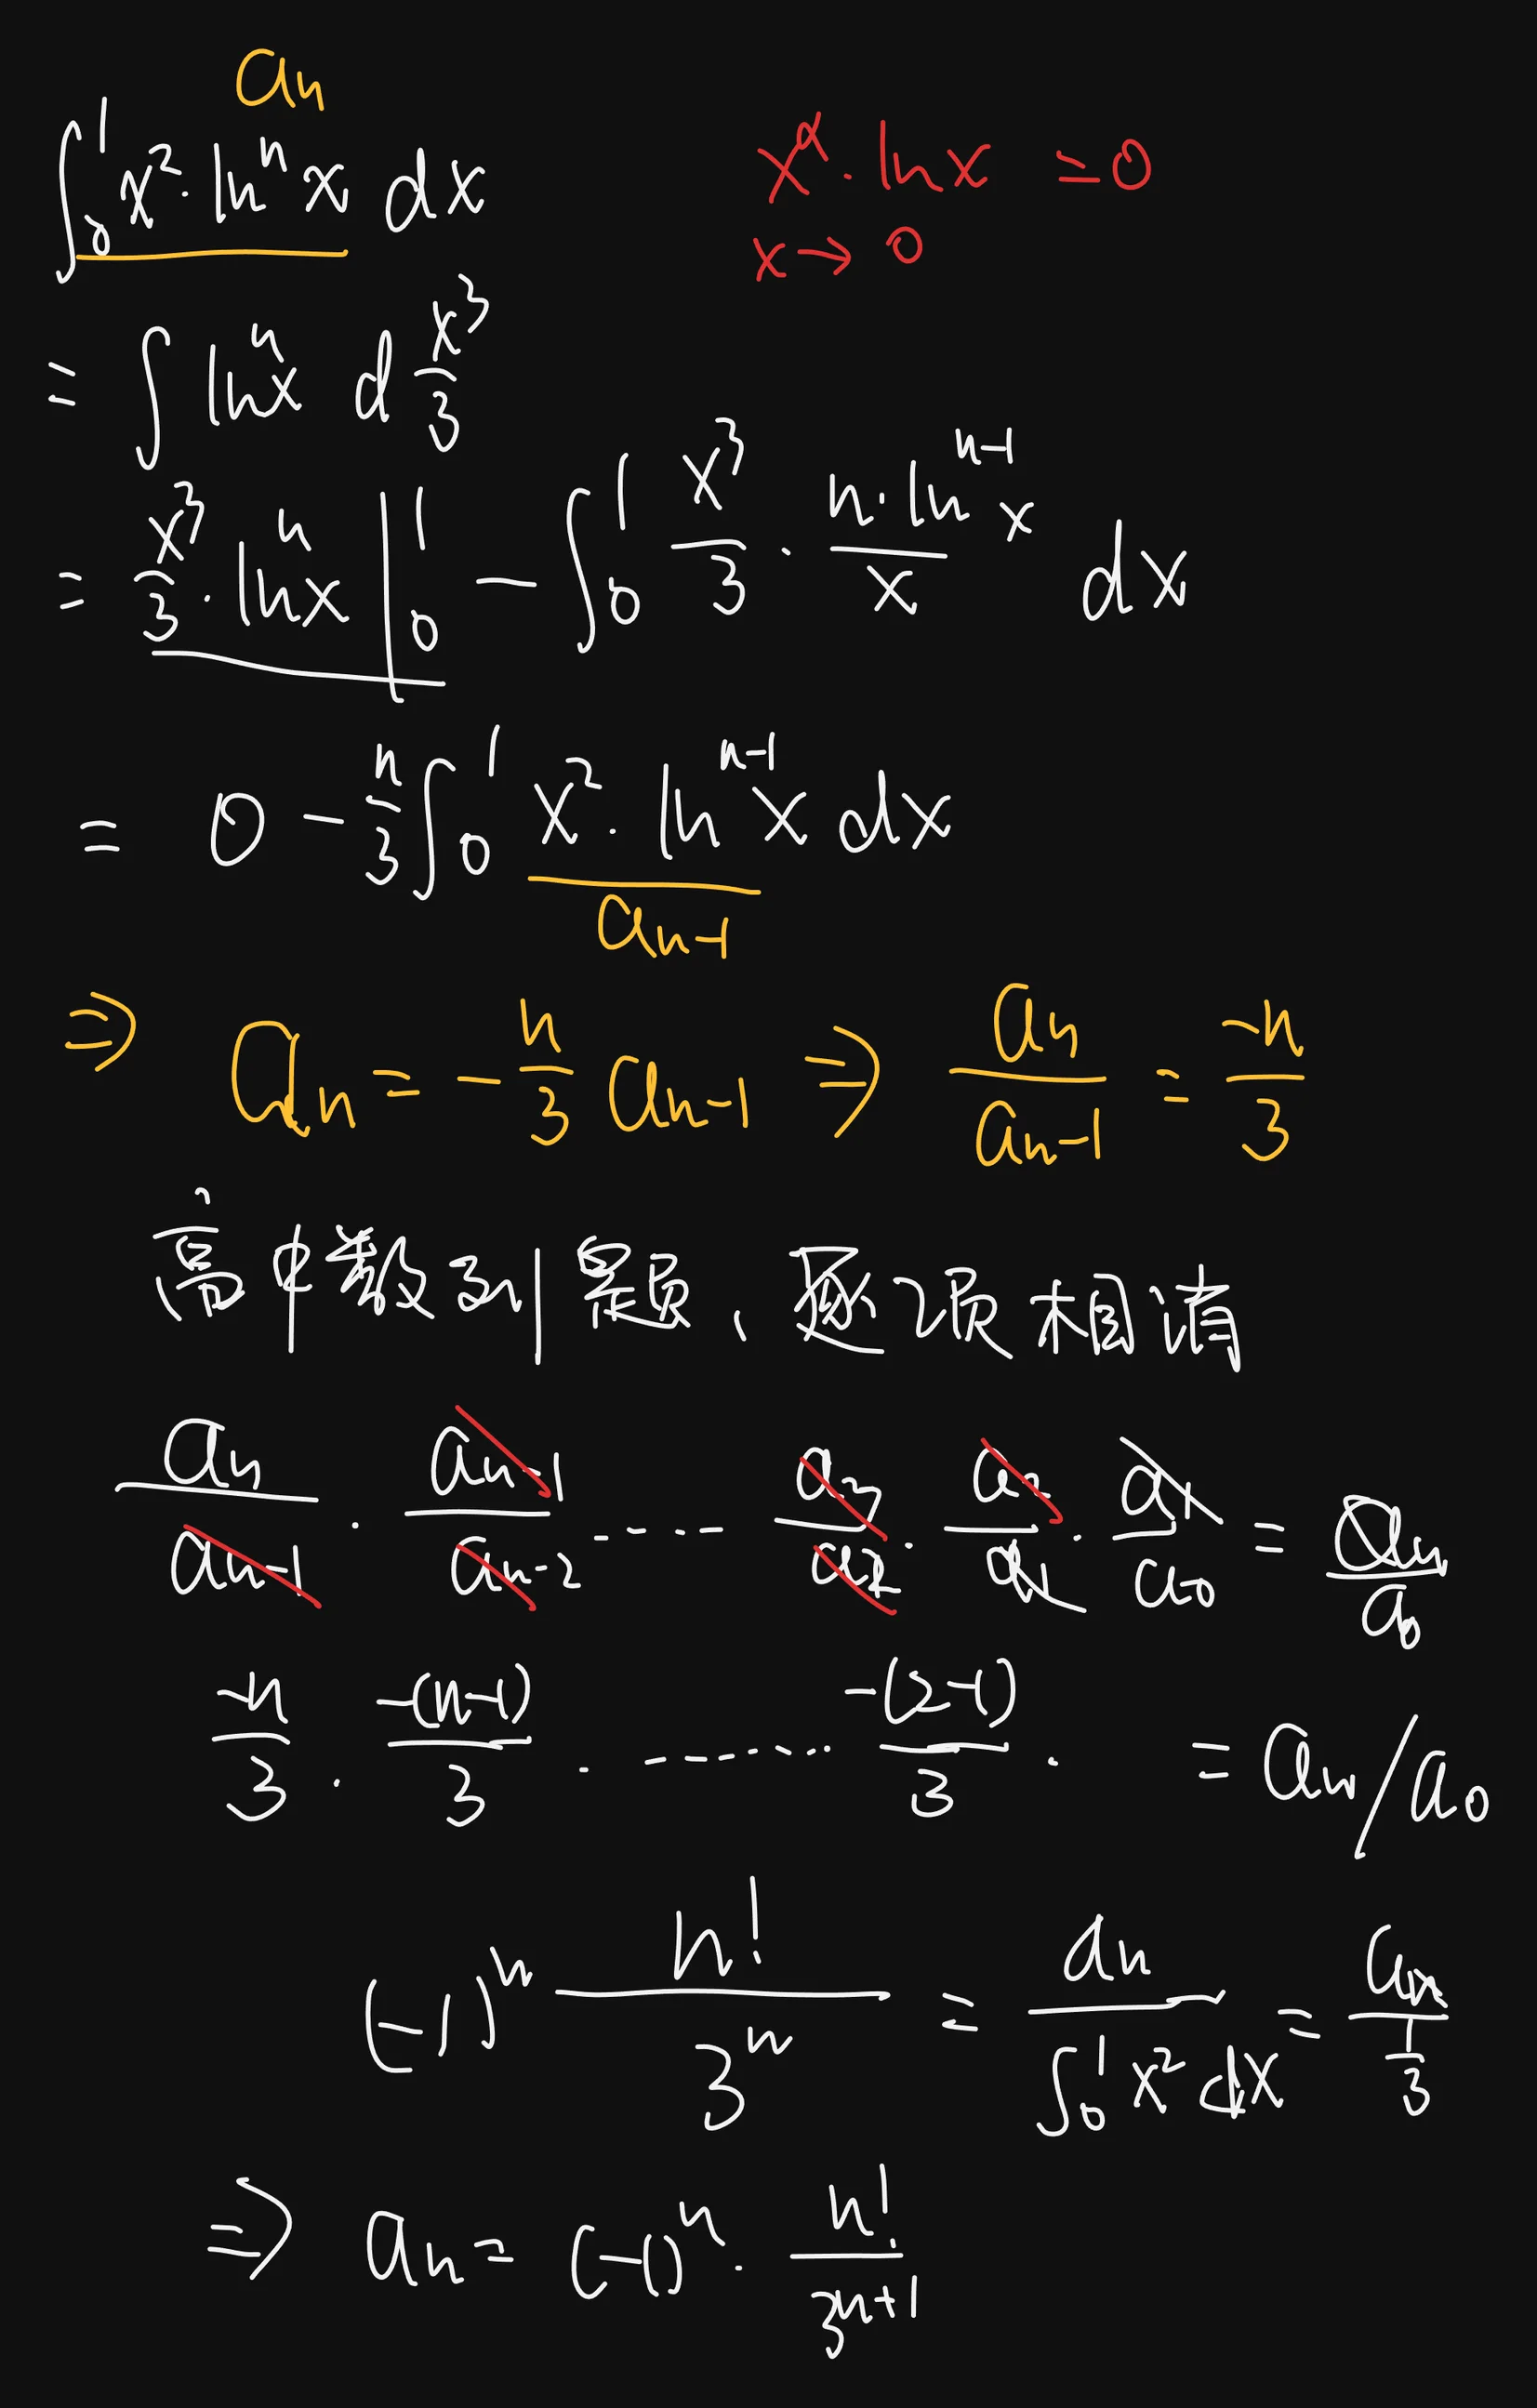 aₙ
∫₀¹ x²·lnⁿx dx
xᵅ·lnx = 0
x→0
= ∫ lnⁿx d x³/3
= x³/3·lnⁿx |₀¹ - ∫₀¹ x³/3 · n·lnⁿ⁻¹x/x dx
= 0 - n/3 ∫₀¹ x²·lnⁿ⁻¹x dx
aₙ₋₁
⇒ aₙ = -n/3 aₙ₋₁ ⇒ aₙ/aₙ₋₁ = -n/3
高中数列题、逐项相消
aₙ/aₙ₋₁ · aₙ₋₁/aₙ₋₂ ······ a₃/a₂ · a₂/a₁ · a₁/a₀ = aₙ/a₀
-n/3 · -(n-1)/3 · ······ -(2-1)/3 · = aₙ/a₀
(-1)ⁿ n!/3ⁿ = aₙ/∫₀¹x²dx = aₙ/(1/3)
⇒ aₙ = (-1)ⁿ · n!/3ⁿ⁺¹